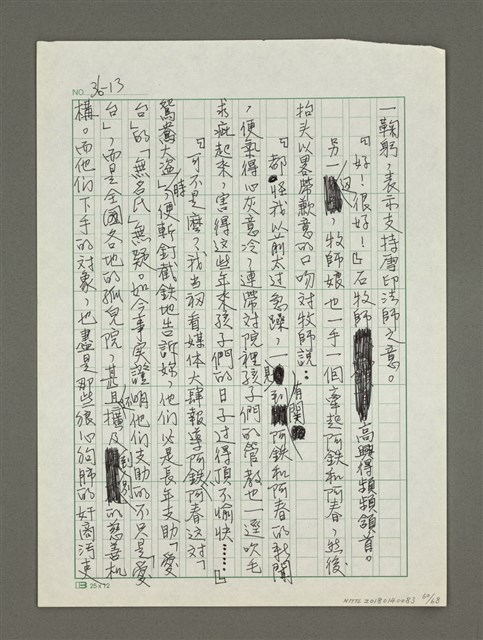 NO. 36-13
一鞠躬，表示支持傳印法師之意。
「好！很好！」石牧師高興得頻頻頷首。
另一邊，牧師娘也一手一個牽起阿鉄和阿春，然後
抬头以畧帶歉意的口吻对牧師說：
「都怪我以前太过急躁，一見到有関阿鉄和阿春的新聞
，便氣得心灰意冷，連帶对院裡孩子們的管教也一逕吹毛
求疵起來，害得这些年來孩子們的日子过得頂不愉快……」
「可不是麼，我当初看媒体大肆報導阿鉄阿春这対「
鴛鴦大盗」時，便斬釘截鉄地告訴妳，他們必是長年支助「愛
台」的「無名氏」無疑。如今事実證明他們支助的不只是「愛
台」，而是全國各地的孤兒院，甚且擴及到別的慈善机
構。而他們下手的对象，也盡是那些狼心狗肺的奸商污吏
25×12
NMTL 20180140083 62/68